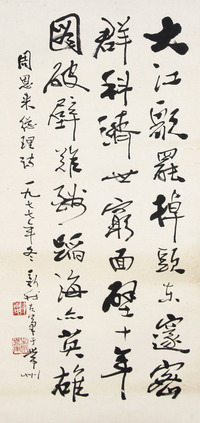 大江歌罷掉頭东邃密
群科濟世窮面壁十年
圖破壁難酬蹈海亦英雄
周恩来總理詩 一九七七年冬 新我左筆于常州